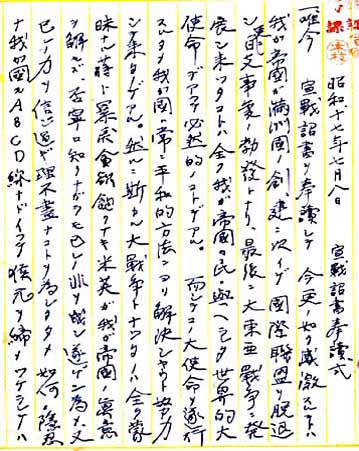 昭和十七年七月八日　宣戦詔書奉読式
「唯今　宣戦詔書ヲ奉読シテ　今更ノ如ク感激スルトハ
我ガ帝国ガ満洲国ノ創建ニ次イデ国際聯盟ヲ脱退
シ支事変ノ勃発トナリ、最後ニ大東亜戦争ニ発
展シ来ツタコトハ全ク我ガ帝国民ニ与ヘラレタ世界的大
使命デアツテ必然的ノコトデアル。而シテコノ大使命ヲ遂行
スルタメ我ガ国ハ常ニ平和的方法ニヨリ解決シヤウト努力
シテ来タノデアル。然ルニ斯カル大戦争トナツタノハ全ク蒙
昧ナ蒋ト暴戻貪欲飽クナキ米英ガ我ガ帝国ノ真意
ヲ解セズ、否寧ロ知リナガラモ己レノ非ヲ成シ遂ゲン為メ、又
己ノ力ヲ信ジ過ギ理不尽ナコトヲ為シタタメ　如何ニ隠忍
ナ我ガ国モＡＢＣＤ線ナドイフテ喉元ヲ締メツケラレテハ